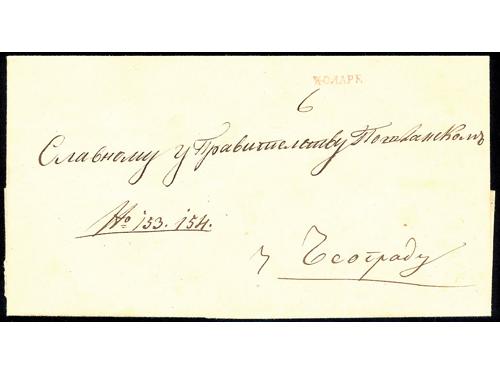 КОЛАРЕ
6
Славному у Правительству Поштанскомъ
№ 153. 154.
у Београду